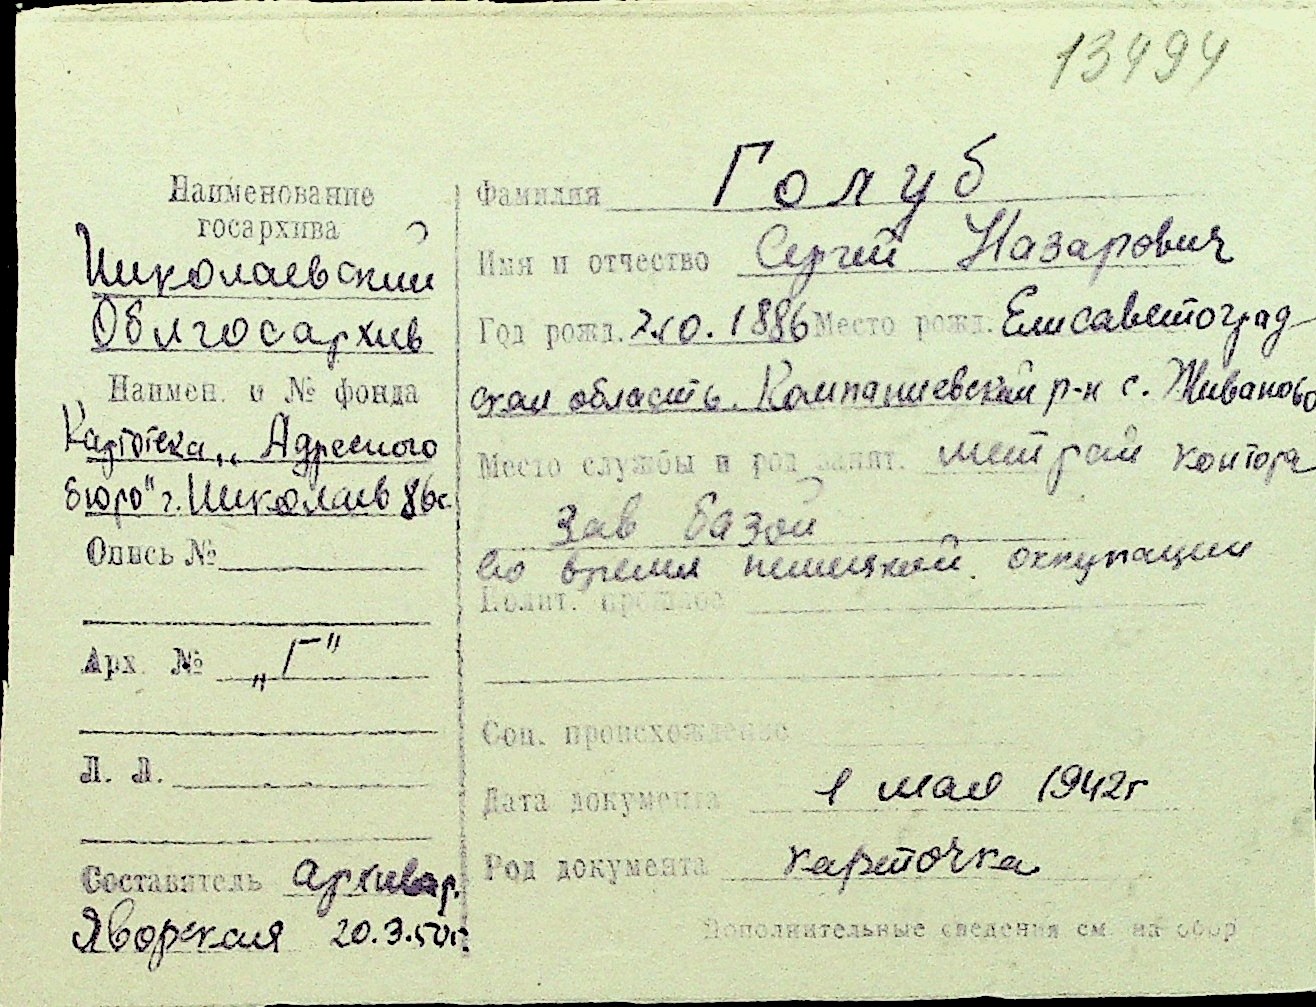 13494
Наименование
госархива
Николаевский
Облгосархив
Наимен. и № фонда
Картотека „Адресного
бюро" г. Николаев
Опись №
Арх. № „Г"
Л. Л.
Составитель архивар.
Яворская 20.3.50г.
Фамилия Голуб
Имя и отчество Сергей Назарович
Год рожд. 7.10.1886 Место рожд. Елисаветоград-
ская область. Компаниевский р-н с. Живаново
Место службы и род занят. контора
Зав базой
во время немецкой оккупации
Полит. прошлое
Соц. происхождение
Дата документа 1 мая 1942г
Род документа карточка
Дополнительные сведения см. на обор